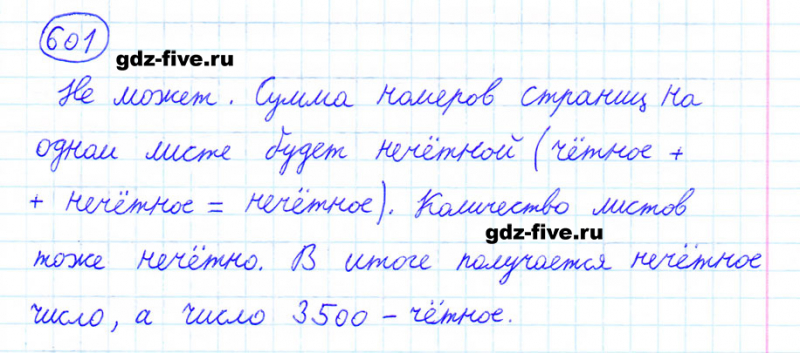 601
gdz-five.ru
Не может. Сумма номеров страниц на
одном листе будет нечётной (чётное +
+ нечётное = нечётное). Количество листов
gdz-five.ru
тоже нечётно. В итоге получается нечётное
число, а число 3500 - чётное.